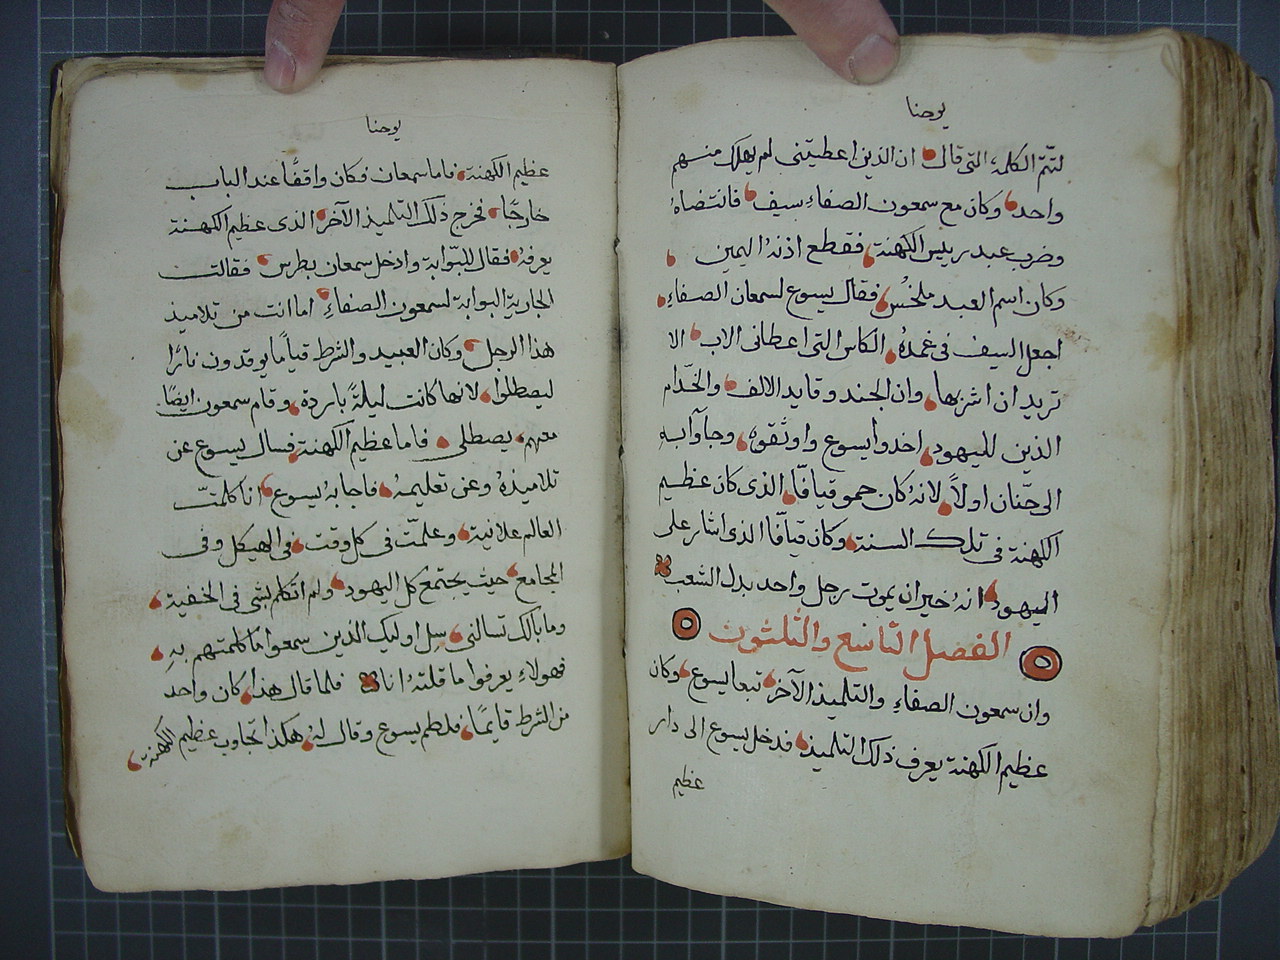 يوحنا
لتتمّ الكلمة التى قال ان الذين اعطيتنى لم يهلك منهم
واحد وكان مع سمعون الصفاءِ سيف فانتضاهُ
وضرب عبد ريس الكهنة فقطع اذنهُ اليمين
وكان اسم العبد ملخُس فقال يسوع لسمعان الصفاءِ
اجعل السيف فى غمدهُ الكاس التى اعطانى الاب الا
تريد ان اشربها وان الجند وقايد الالف والخدّام
الذين لليهود اخدوا يسوع واوثقوه وجاآوا به
الى حنّان اولاً لانهُ كان حمو قيافّا الذى كان عظيم
الكهنة فى تلك السنة وكان قيافّا الذى اشار على
اليهود انهُ خير ان يموت رجل واحد بدل الشعب
الفصل التاسع والثلثون
وان سمعون الصفاءِ والتلميذ الآخر تبعا يسوع وكان
عظيم الكهنة يعرف ذلك التلميذ فدخل يسوع الى دار
عظيم
يوحنا
عظيم الكهنة فاما سمعان فكان واقفًا عند الباب
خارجًا فخرج ذلك التلميذ الآخر الذى عظيم الكهنة
يعرفهُ فقال للبّوابة وادخل سمعان بطرس فقالت
الجارية البوابة لسمعون الصفاءِ اما انت من تلاميذ
هذا الرجل وكان العبيد والشرط قياماً يوقدون نارًا
ليصطلوا لانها كانت ليلةً باردة وقام سمعون ايضًا
معهم يصطلى فاما عظيم الكهنة فسال يسوع عن
تلاميذهُ وعن تعليمهُ فاجابهُ يسوع انا كلمتّ
العالم علانية وعلمّت فى كل وقت فى الهيكل وفى
المجامع حيث يجتمع كل اليهود ولم اتكلم بشى فى الخفية
وما بالك تسالنى سل اوليك الذين سمعوا ما كلمتهم بهِ
فهولاءِ يعرفوا ما قلتهُ انا فلما قال هذا كان واحد
من الشرط قايمًا فلطم يسوع وقال لهُ هكذا تجاوب عظيم الكهنة